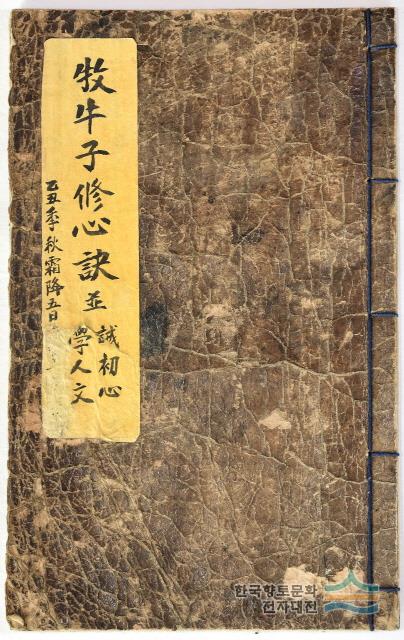 牧牛子修心訣並
誠初心
學人文
乙丑季秋霜降五日
한국향토문화
전자대전